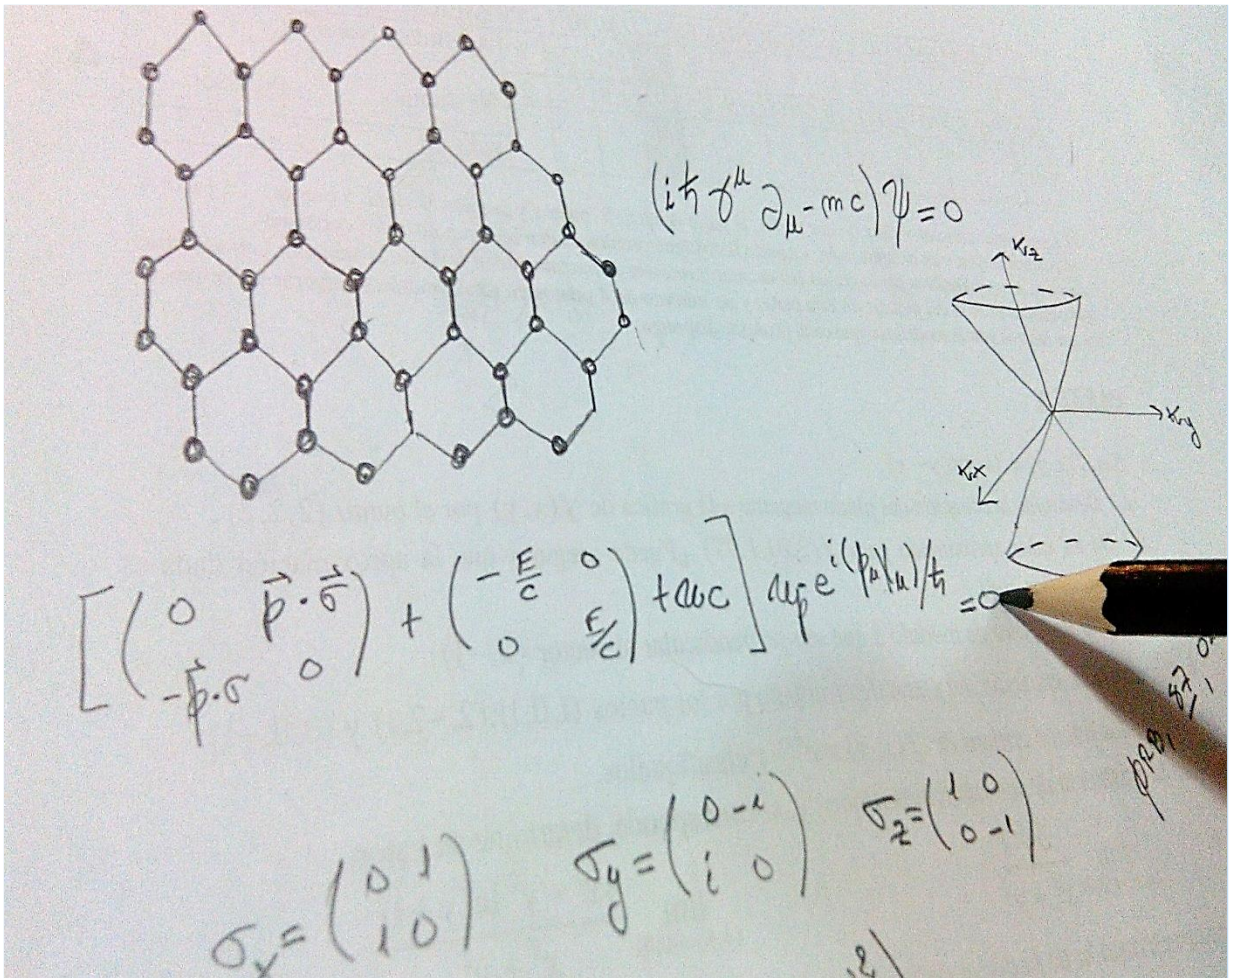 (iℏ γ^μ ∂_μ - mc)ψ = 0
K_z
K_y
K_x
[ ( 0 p⃗·σ⃗ ; -p⃗·σ 0 ) + ( -E/c 0 ; 0 E/c ) + mc ] u_p e^{i(p_μ x_μ)/ℏ} = 0
PRB, 87,
σ_x = ( 0 1 ; 1 0 )
σ_y = ( 0 -i ; i 0 )
σ_z = ( 1 0 ; 0 -1 )